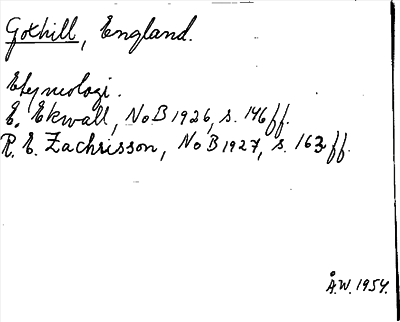 Goxhill, England.
Etymologi.
E. Ekwall, NoB 1926, s. 146 ff.
R. E. Zachrisson, NoB 1927, s. 163 ff.
Å.W. 1954.